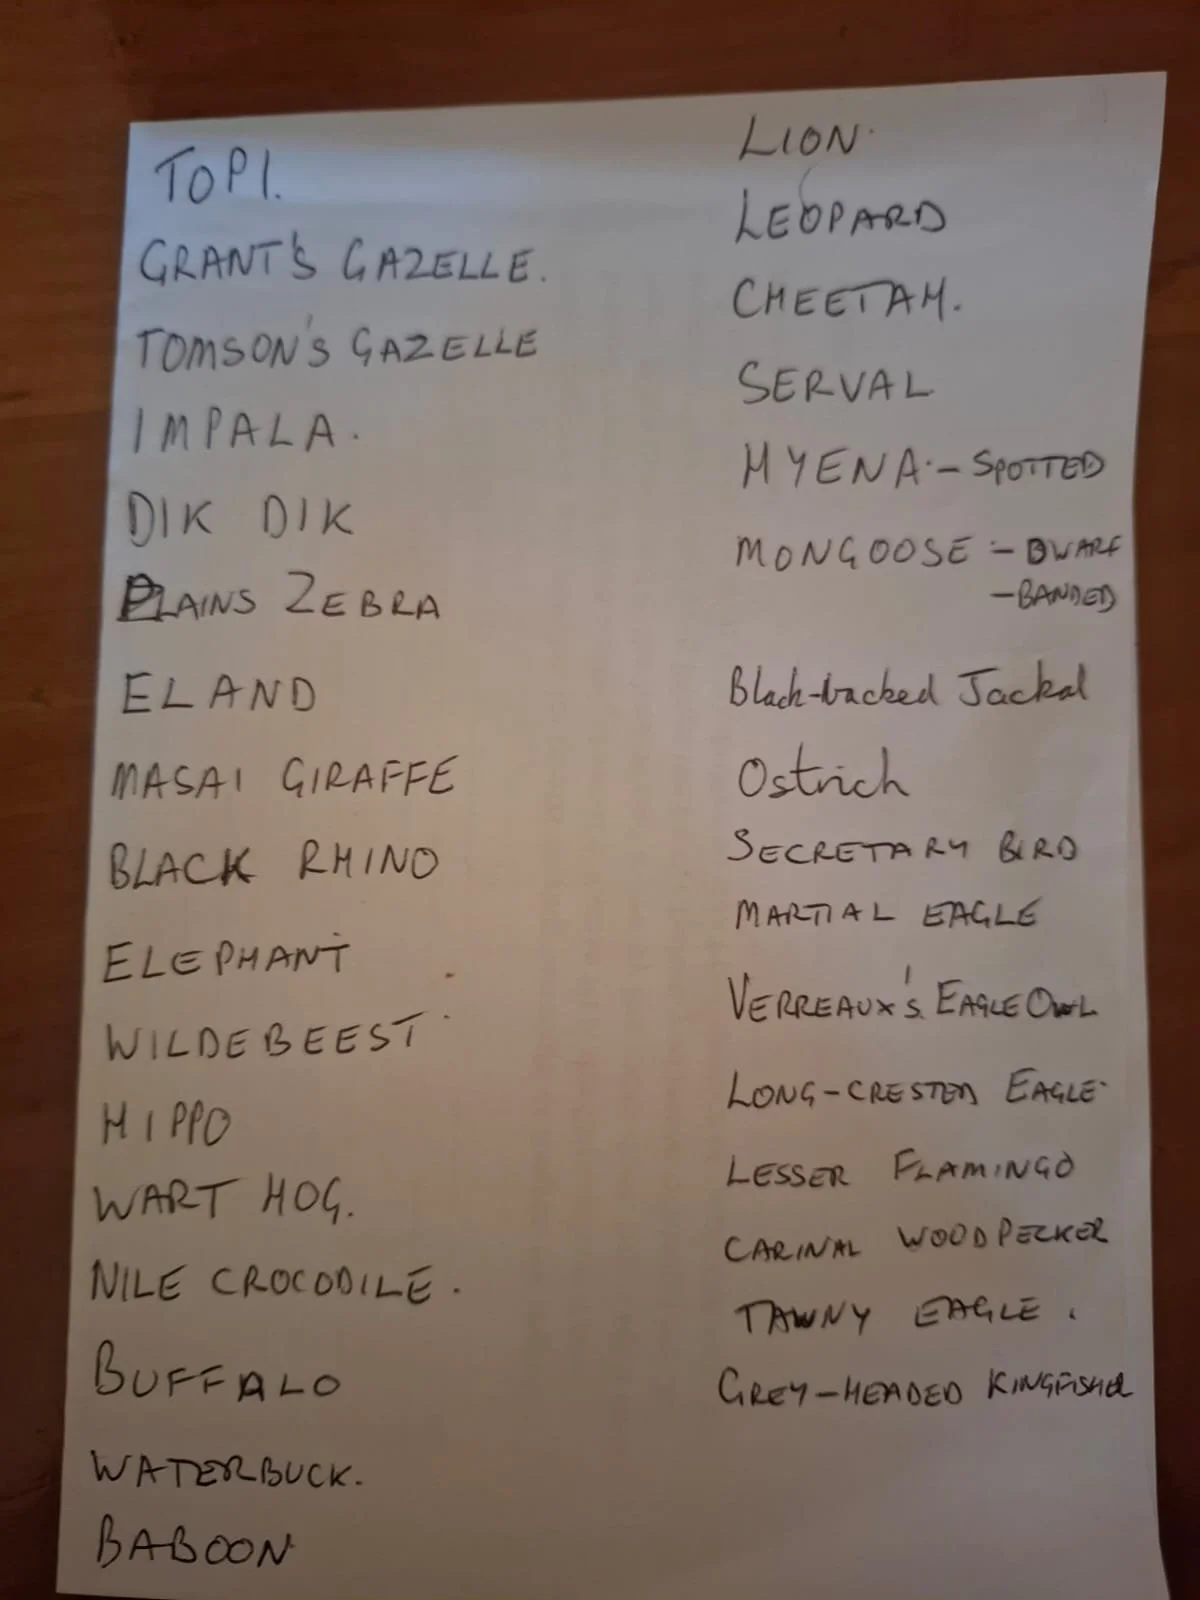 TOPI.
GRANT'S GAZELLE.
TOMSON'S GAZELLE
IMPALA.
DIK DIK
PLAINS ZEBRA
ELAND
MASAI GIRAFFE
BLACK RHINO
ELEPHANT
WILDEBEEST
HIPPO
WART HOG.
NILE CROCODILE.
BUFFALO
WATERBUCK.
BABOON
LION.
LEOPARD
CHEETAH.
SERVAL
HYENA.- SPOTTED
MONGOOSE :- DWARF
-BANDED
Black-backed Jackal
Ostrich
SECRETARY BIRD
MARTIAL EAGLE
VERREAUX'S EAGLE OWL
LONG-CRESTED EAGLE.
LESSER FLAMINGO
CARINAL WOODPECKER
TAWNY EAGLE.
GREY-HEADED KINGFISHER